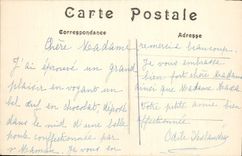 Carte Postale
Correspondance
Adresse
Chère Madame
J'ai éprouvé un grand
plaisir en voyant un
bel œuf en chocolat, déposé
dans le nid d'une belle
poule confectionnée par
Maman. Je vous en
remercie beaucoup.
Je vous embrasse
bien fort chère Madame
ainsi que Madame
Votre petite amie bien
affectionnée
Odile